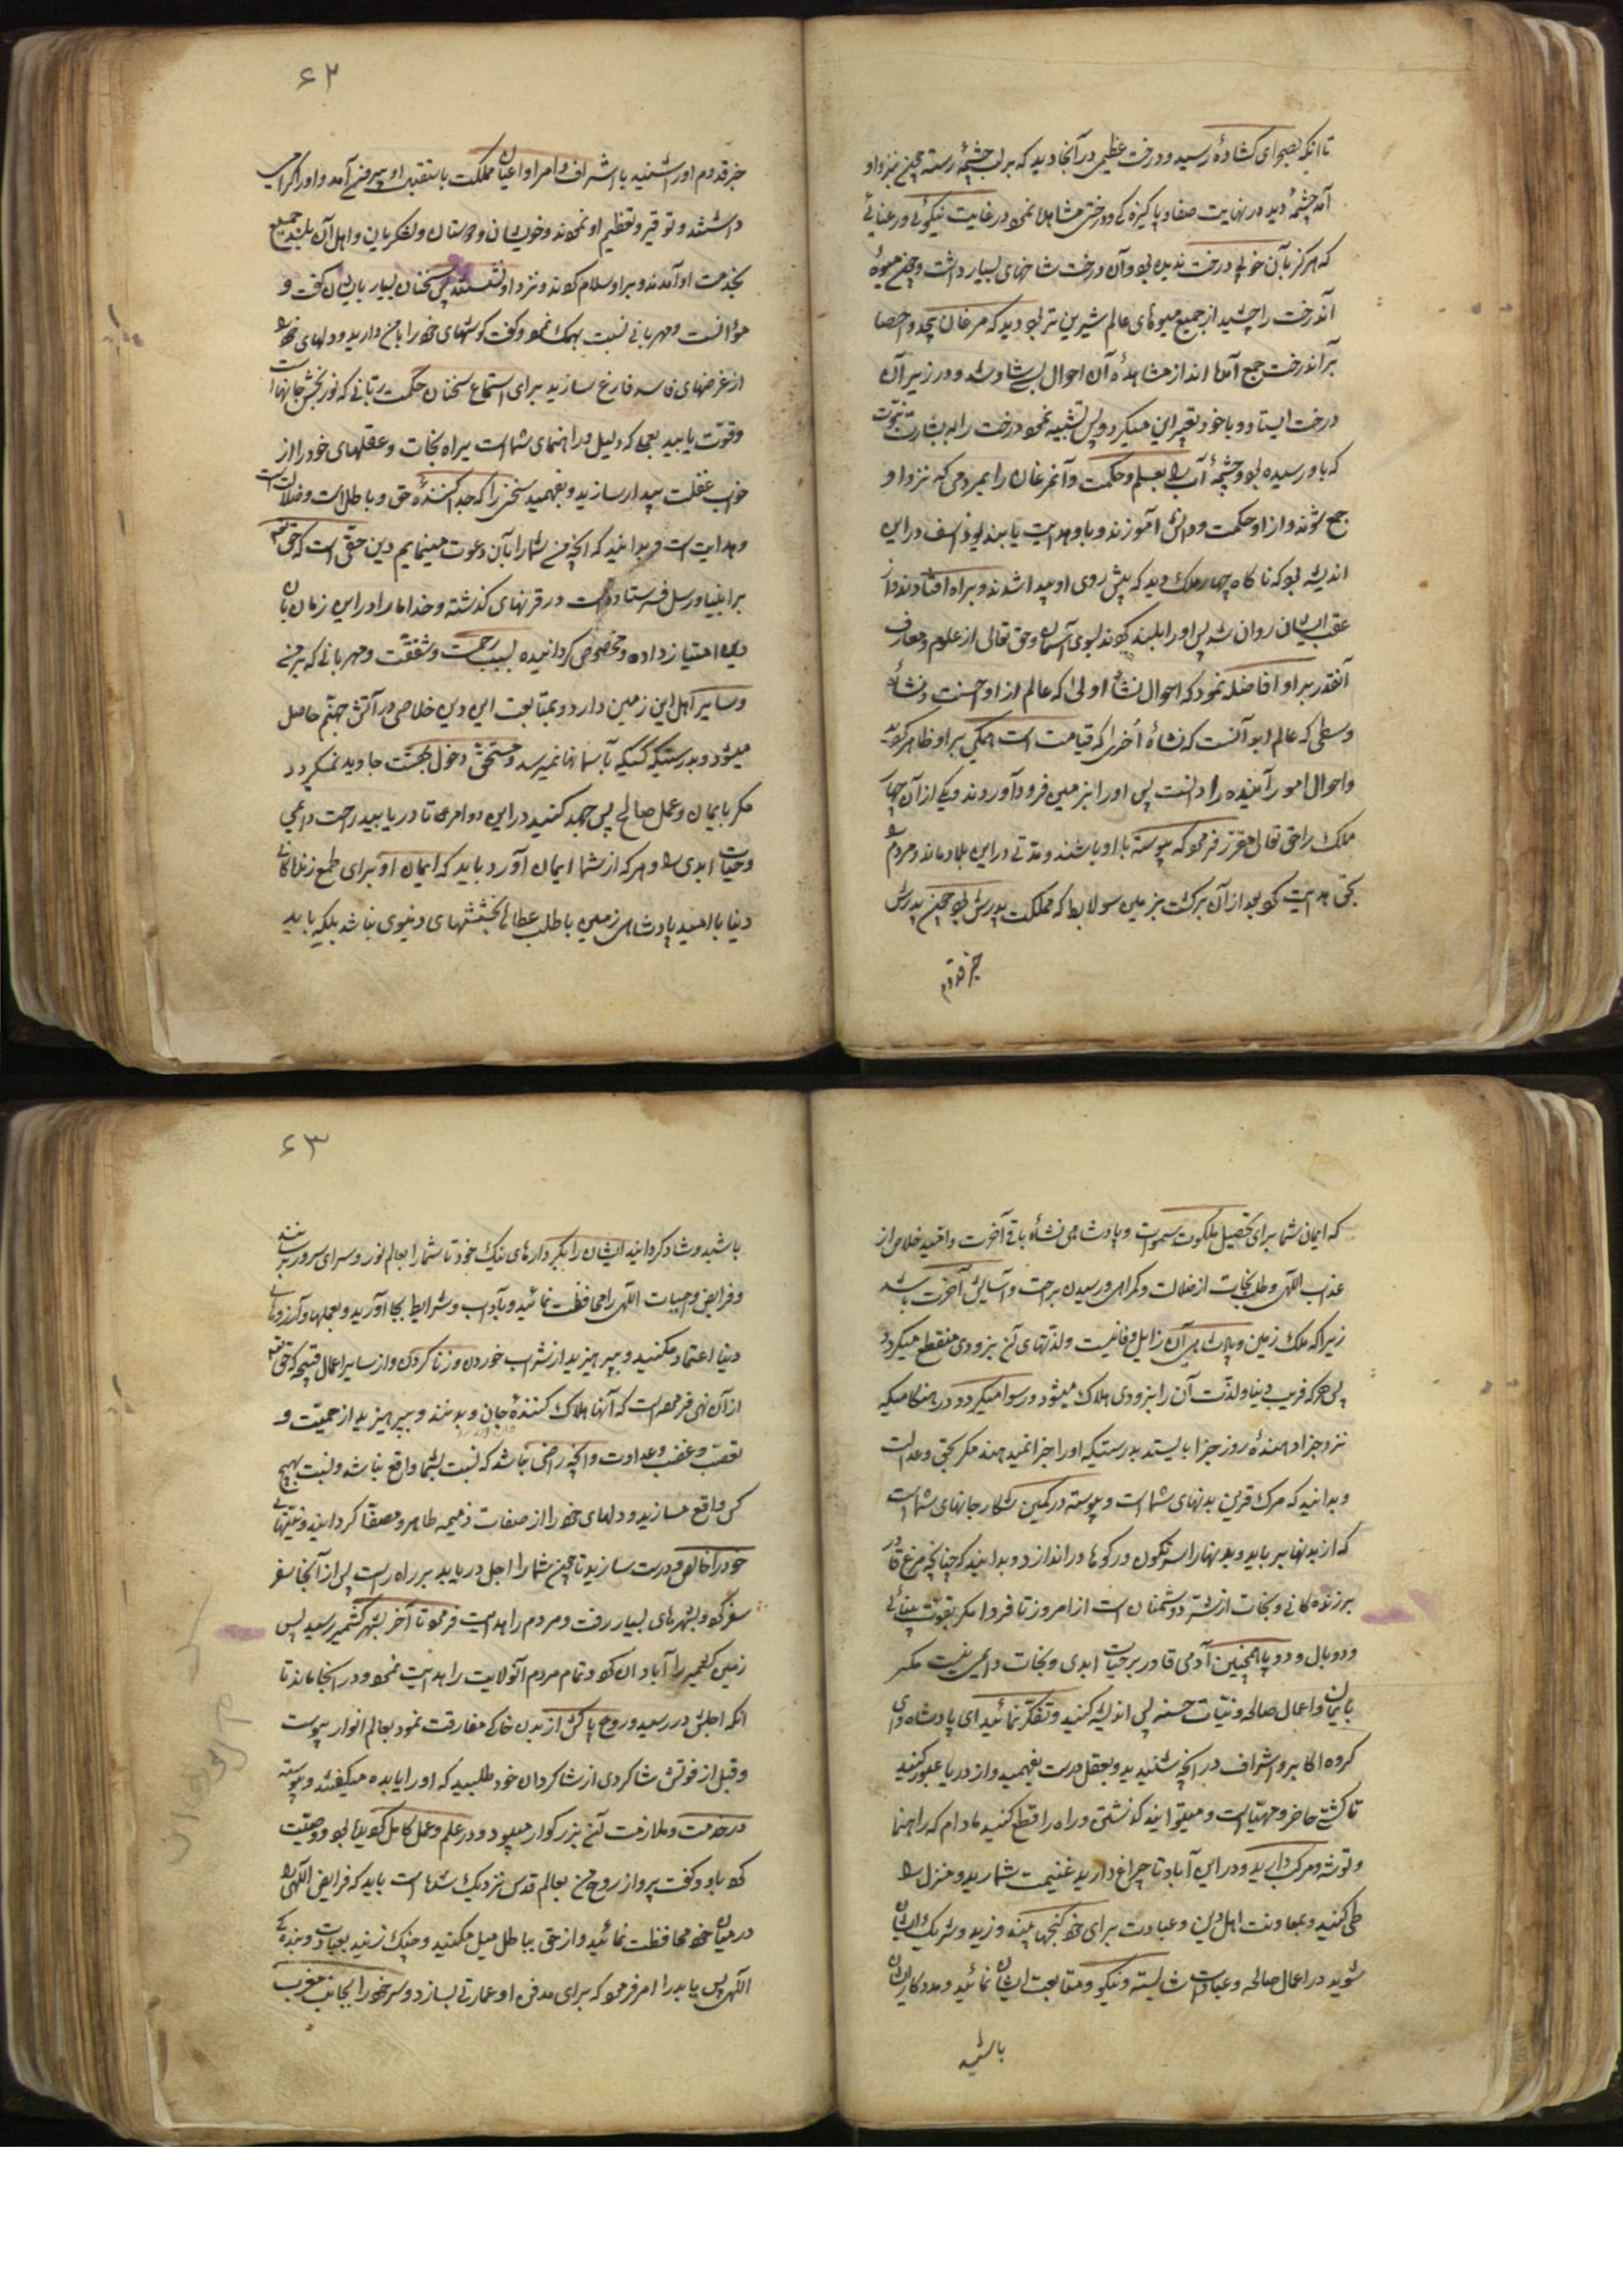 تا آنکه بصحرای کشاده رسید و درخت عظیمی در آنجا دید که بر لب چشمهٔ رسته چون نزد او
آمد چشمهٔ دید در نهایت صفا و پاکیزه کی و درختی مشاهده نمود در غایت نیکوئی و رعنائی
که هرکز بآن خوبی درخت ندیده بود و آن درخت شاخهای بسیار داشت و چون میوهٔ
آندرخت را چشید از جمیع میوهای عالم شیرین تر بود و دید که مرغان بیحد و احصا
بر آندرخت جمع آمده اند از مشاهدهٔ آن احوال بسی شاد شد و در زیر آن
درخت ایستاد و با خود تعبیر این میکرد پس تشبیه نمود درخت را به بشارت نبوّت
که باو رسیده بود و چشمهٔ آب را بعلم و حکمت و آنمرغان را بمردمی که نزد او
جمع شوند و از او حکمت و دانش آموزند و باو هدایت یابند یوذاسف در این
اندیشه بود که ناکاه چهار ملک دید که پیش روی او پیدا شدند و براه افتادند و از
عقب ایشان روان شد پس او را بلند کردند بسوی آسمان و حق تعالی از علوم و معارف
آنقدر بر او افاضه نمود که احوال نشأهٔ اولی که عالم ارواحست و نشأهٔ
وسطی که عالم ابدانست که نشأهٔ اُخری که قیامت است همکی بر او ظاهر کردید
و احوال امور آینده را دانست پس او را بزمین فرود آوردند و یکی از آن چهار
ملک را حق تعالی مقرّر فرمود که پیوسته با او باشند و مدّتی در این بلاد ماند و مردم را
بحق هدایت کرد بعد از آن برکشت بزمین سولابط که مملکت پدرش بود چون پدرش
خبر قدوم
۶۲
خبر قدوم او را شنید با اشراف و امرا و اعیان مملکت باستقبال او بیرون آمد و او را کرامی
داشتند و توقیر و تعظیم او نمودند و خویشان و دوستان و لشکریان و اهل آن بلد جمیع
بخدمت او آمدند و بر او سلام کردند و نزد او نشستند پس سخنان بسیار بایشان کفت و
مؤانست و مهربانی نسبت بهمک نمود و کفت کوشهای خود را با من دارید و دلهای خود را
از غرضهای فاسد فارغ سازید برای استماع سخنان حکمت ربّانی که نور بخش جانها است
و قوّت یابید بعلمی که دلیل و راهنمای شما است براه نجات و عقلهای خود را از
خواب غفلت بیدار سازید و بفهمید سخنی را که جدا کنندهٔ حق و باطل است و ضلالت
و هدایت است و بدانید که آنچه من شما را بآن دعوت مینمایم دین حقی است که حق تعالی
بر انبیا و رسل فرستاده است در قرنهای کذشته و خدا ما را در این زمان بآن
دین امتیاز داده و مخصوص کردانیده بسبب رحمت و شفقت و مهربانی که بر من
و سایر اهل این زمین دارد و بمتابعت این دین خلاصی در آتش جهنّم حاصل
میشود و بدرستیکه کسی که بآسمانها نمیرسد و مستحق دخول بهشت جاوید نمیکردد
مکر بایمان و عمل صالح پس جهد کنید در این دو امر تا دریابید راحت دایمی
و حیات ابدی را و هر که از شما ایمان آورد باید که ایمان او برای طمع زندکانی
دنیا یا امید پادشاهی زمین یا طلب عطاها بخششهای دنیوی نباشد بلکه باید
که ایمان شما برای تحصیل ملکوت سموات و پادشاهی نشأهٔ باقی آخرت و امّید خلاصی از
عذاب الهی و طلب نجات از ضلالت و کمراهی و رسیدن براحت و آسایش آخرت باشد
زیرا که ملک زمین و پادشاهی آن زایل و فانیست و لذّتهای آن بزودی منقطع میکردد
پس هر که فریب دنیا و لذّت آن را بزودی هلاک میشود و رسوا میکردد در هنکامیکه
نزد جزا دهندهٔ روز جزا بایستد بدرستیکه او را جزا نمیدهند مکر بحق و عدالت
و بدانید که مرک قرین بدنهای شما است و پیوسته در کمین شکار جانهای شما است
که از بدنها بر باید و بدنها را سرنکون در کودها در اندازد و بدانید که چنانچه مرغ قادر
بر زنده کانی و نجات از شرّ دشمنان است از امروز تا فردا مکر بقوّت بینائی
و دو بال و دو پا همچنین آدمی قادر بر حیات ابدی و نجات دایمی نیست مکر
بایمان و اعمال صالحه و نیّات حسنه پس اندیشه کنید و تفکّر نمائید ای پادشاه و ای
کروه اکابر و اشراف در آنچه شنیدید و بعقل درست بفهمید و از دریا عبور کنید
تا کشتی حاضر و مهیّا است و میتوانید کذشتن و راه را قطع کنید مادام که راهنما
و توشه و مرکب دارید و در این آباد تا چراغ دارید غنیمت شمارید و منزل را
طی کنید و بمعاونت اهل دین و عبادت برای خود کنجها بیندوزید و شریک ایشان
شوید در اعمال صالحه و عبادات شایسته و نیکو و متابعت ایشان نمائید و مددکار ایشان
باشید
۶۳
باشید و شاد کردانید ایشان را بکردارهای نیک خود تا شما را بعالم نور و سرای سرور برسانند
و فرایض و واجبات الهی را محافظت نمائید و بآداب و شرایط بجا آورید و بعملها و آرزوهای
دنیا اعتماد مکنید و بپرهیزید از شراب خوردن و زنا کردن و از سایر اعمال قبیحه که حق تعالی
از آن نهی فرموده است که آنها هلاک کنندهٔ جان و بدنند و بپرهیزید از حمیّت و
تعصّب و غضب و عداوت و آنچه راضی نباشد که نسبت بشما واقع نباشد و نسبت بهیچ
کس واقع مسازید و دلهای خود را از صفات ذمیمه طاهر و مصفّا کردانید و نیّتهای
خود را خالص و درست سازید تا چون شما را اجل دریابد بر راه راست پس از آنجا سفر
سفر کرد و بشهرهای بسیار رفت و مردم را هدایت فرمود تا آخر بشهر کشمیر رسید پس
زمین کشمیر را آبادان کرد و تمام مردم آنولایت را هدایت نمود و در آنجا ماند تا
آنکه اجلش در رسید و روح پاکش از بدن خاکی مفارقت نمود بعالم انوار پیوست
و قبل از فوتش شاکردی از شاکردان خود طلبید که او را یابده میکفتند و پیوسته
در خدمت و ملازمت آن بزرکوار میبود و در علم و عمل کامل کردیده بود و وصیّت
کرد باو و کفت پرواز روح من بعالم قدس نزدیک شده است باید که فرایض الهی را
در میان خود محافظت نمائید و از حق بباطل میل مکنید و چنک زنید بعبادت و بندکی
الهی پس یابد را امر فرمود که برای مدفن او عمارتی بسازد و سر خود را بجانب مغرب